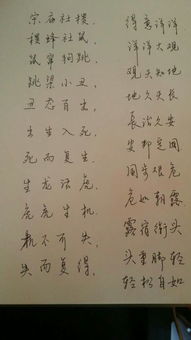 宗庙社稷,
稷蜂社鼠,
鼠窜狗跳,
跳梁小丑,
丑态百生,
生生入死,
死而复生,
生龙活虎,
虎虎生机,
机不可失,
失而复得,
得意洋洋
洋洋大观
观天知地
地久天長
長治久安
安邦定国
国步艰危
危如朝露
露宿街头
头重脚轻
轻松自如